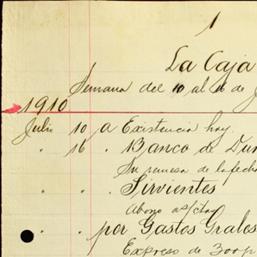 1
La Caja
Semana del 10 al 16 de J
1910
Julio 10 a Existencia hoy.
" 16 " Banco de Dur
Su remesa de la fecha
" " " Sirvientes
Abono a/c/
" " por Gastos Grales
Expreso de 300 p